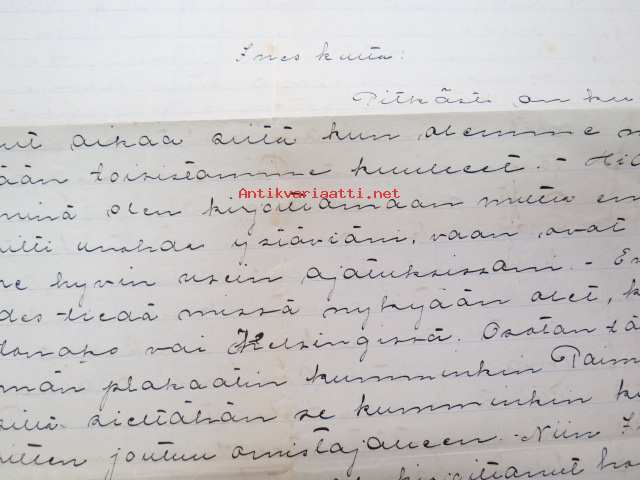 Ines kulta:
Pitkästi on ku
ut aikaa siitä kun olemme m
ään toisistamme kuulleet. - Hid
Antikvariaatti.net
minä olen kirjoittamaan mutta en
silti unohda ystäviäni, vaan ovat
ne hyvin usein ajatuksissani. - En
des tiedä missä nykyään olet, k
donako vai Helsingissä. Osotan tä
män plakaatin kumminkin Paim
sillä sieltähän se kumminkin ku
sitten joutuu omistajalleen. - Niin I
kirjoittanut